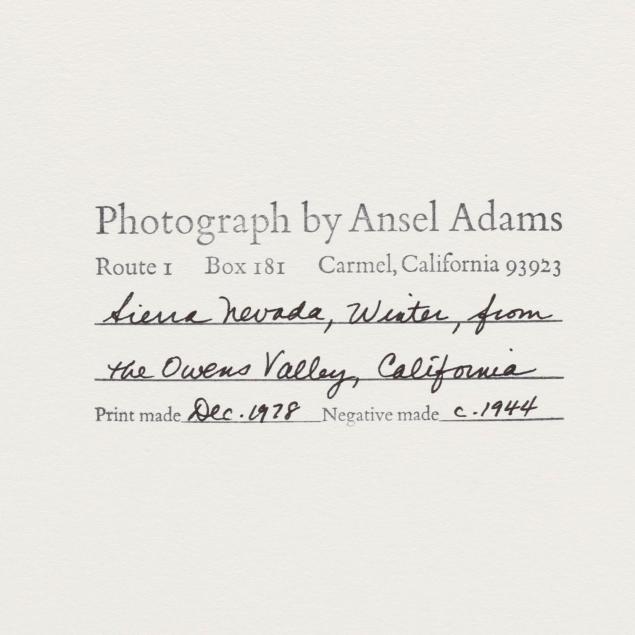 Photograph by Ansel Adams
Route 1 Box 181 Carmel, California 93923
Sierra Nevada, Winter, from
the Owens Valley, California
Print made Dec. 1978 Negative made c. 1944